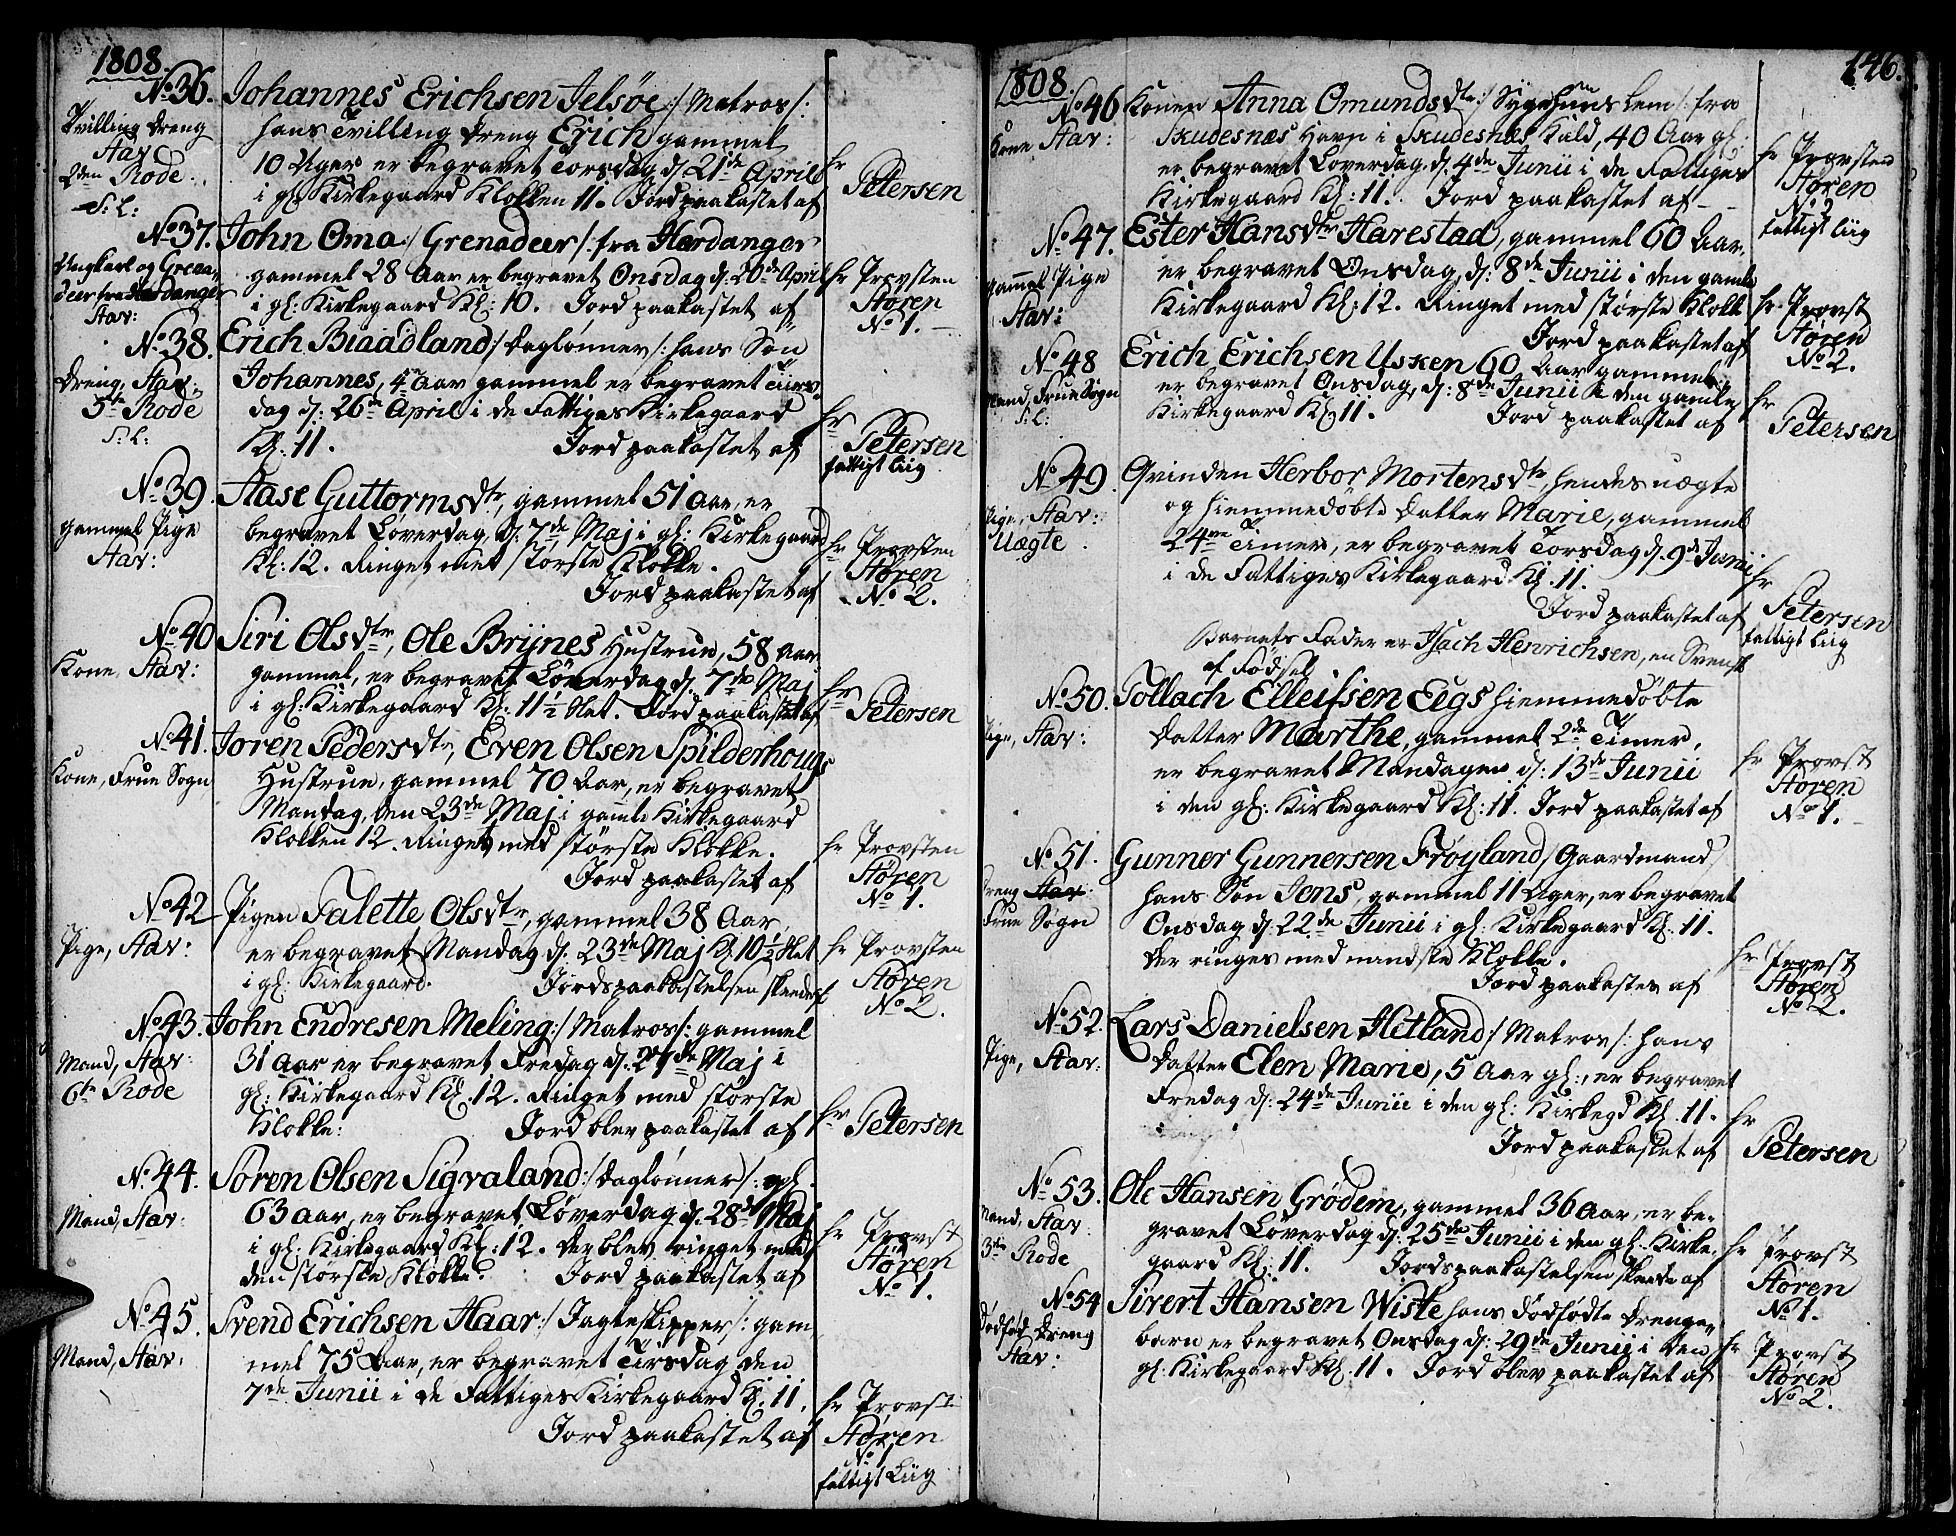 1808.
No 36. Johannes Erichsen Jelsøe :/ Matros /:
Tvilling Dreng
Stav
2den Rode
S: L:
hans Tvilling Dreng Erich gammel
10 Uger er begravet Torsdag d: 21de April
i gl: Kirkegaard Klokken 11. Jord paakastet af
Hr Petersen
No 37. John Oma :/ Grenadeer /: fra Hardanger
Ungkarl og Grena-
deer fra Hardanger
Stav:
gammel 28 Aar er begravet Onsdag d: 20de April
i gl: Kirkegaard Kl: 10. Jord paakastet af
Hr Provsten
Støren
No 1.
No 38. Erich Braadland :/ Daglønner /: hans Søn
Dreng, Stav.
5te Rode
S: L:
Johannes, 4re Aar gammel er begravet Tirs-
dag d: 26de April i de Fattiges Kirkegaard
Kl: 11. Jord paakastet af
Hr
Petersen
fattigt Liig
No 39. Aase Guttormsdtr, gammel 51 Aar, er
gammel Pige
Stav:
begravet Løverdag, d: 7de Maj i gl: Kirkegaard
Kl: 12. Ringet met største Klokke.
Jord paakastet af
Hr Provsten
Støren
No 2.
No 40 Siri Olsdtr, Ole Brÿnes Hustrue, 58 Aar
Kone, Stav:
gammel, er begravet Løverdag d: 7de Maj
i gl: Kirkegaard Kl: 11½ Slet. Jord paakastet af
Hr
Petersen
No 41. Joren Pedersdtr, Even Olsen Spilderhougs
Kone, Frue Sogn
Hustrue, gammel 70 Aar, er begravet
Mandag, den 23de Maj i gamle Kirkegaard
Klokken 12. Ringet med største Klokke.
Jord paakastet af
Hr Provsten
Støren
No 1.
No 42 Pigen Talette Olsdtr, gammel 38 Aar,
Pige, Stav:
er begravet Mandag d: 23de Maj Kl 10½ Slet
i gl: Kirkegaard. Jordspaakastelsen skeede af
Hr Provsten
Støren
No 2.
No 43. John Endresen Meling :/ Matros /: gammel
Mand, Stav:
6te Rode
31 Aar er begravet Fredag d: 27de Maj i
gl: Kirkegaard Kl. 12. Ringet med største
Klokke: Jord blev paakastet af
Hr
Petersen
No 44. Søren Olsen Sigvaland :/ Daglønner /: gl.
Mand, Stav:
63 Aar, er begravet Løverdag d: 28de Maj
i gl: Kirkegaard Kl: 12. Der blev ringet med
den største Klokke. Jord paakastet af
Hr Provst
Støren
No 1.
No 45. Svend Erichsen Haar :/ Jagteskipper /: gam
Mand, Stav.
mel 75 Aar, er begravet Tirsdag den
7de Junii i de Fattiges Kirkegaard Kl. 11.
Jord paakastet af
Hr Provst
Støren
No 1
fattigt Liig
146.
1808.
No 46 Konen Anna Omundsdtr :/ Sygehuus Lem /: fra
Kone Stav:
Skudesnæs Havn i Skudesnæs Kald, 40 Aar gl:
er begravet Løverdag d: 4de Junii i de Fattiges
Kirkegaard Kl: 11. Jord paakastet af
Hr Provsten
Støren
No 2
fattigt Liig
No 47. Ester Hansdtr Harestad, gammel 60 Aar.
gammel Pige
Stav:
er begravet Onsdag, d: 8de Junii i den gamle
Kirkegaard Kl: 12. Ringet med største Klokk
Jord paakastet af
Hr Provst
Støren
No 2.
No 48 Erich Erichsen Usken 60 Aar gammel
Mand, Frue Sogn
S: L:
er begravet Onsdag, d: 8de Junii i den gamle
Kirkegaard Kl 11. Jord paakastet af
Hr
Petersen
No 49. Qvinden Herbor Mortensdtr, hendes uægte
Pige, Stav:
Uægte
og hiemmedøbte Datter Marie, gammel
24re Timer, er begravet Torsdag d: 9de Junii
i de Fattiges Kirkegaard Kl. 11.
Jord paakastet af
Hr
Petersen
fattigt Liig
Barnets Fader er Isach Henrichsen, en Svensk
af Fødsel
No 50. Tollach Elleifsen Eegs hiemmedøbte
Pige, Stav:
Datter Marthe, gammel 2de Timer,
er begravet Mandagen d: 13de Junii
i den gl: Kirkegaard Kl: 11. Jord paakastet af
Hr Provst
Støren
No 1.
No 51. Gunner Gunnersen Frøyland / Gaardmand /
Dreng Stav:
Frue Sogn
hans Søn Jens, gammel 11 Uger, er begravet
Onsdag d: 22de Junii i gl: Kirkegaard Kl: 11.
Der ringes med mindste Klokke.
Jord paakastes af
Hr Provst
Støren
No 2.
No 52. Lars Danielsen Hetland :/ Matros /: hans
Pige, Stav:
Datter Elen Marie, 5 Aar gl:, er begravet
Fredag d: 24de Junii i den gl: Kirkegd Kl. 11.
Jord paakastet af
Hr
Petersen
No 53. Ole Hansen Grødem, gammel 36 Aar, er be-
Mand, Stav
3die Rode
gravet Løverdag d: 25de Junii i den gl. Kirke-
gaard Kl: 11. Jordspaakastelsen skeede af
Hr Provst
Støren
No 1.
No 54 Sivert Hansen Wiste hans dødfødte Drenge-
Dødfød Dreng
Stav:
barn er begravet Onsdag d: 29de Junii i den
gl: Kirkegaard Kl. 11. Jord blev paakastet af
Hr Provst
Støren
No 2.